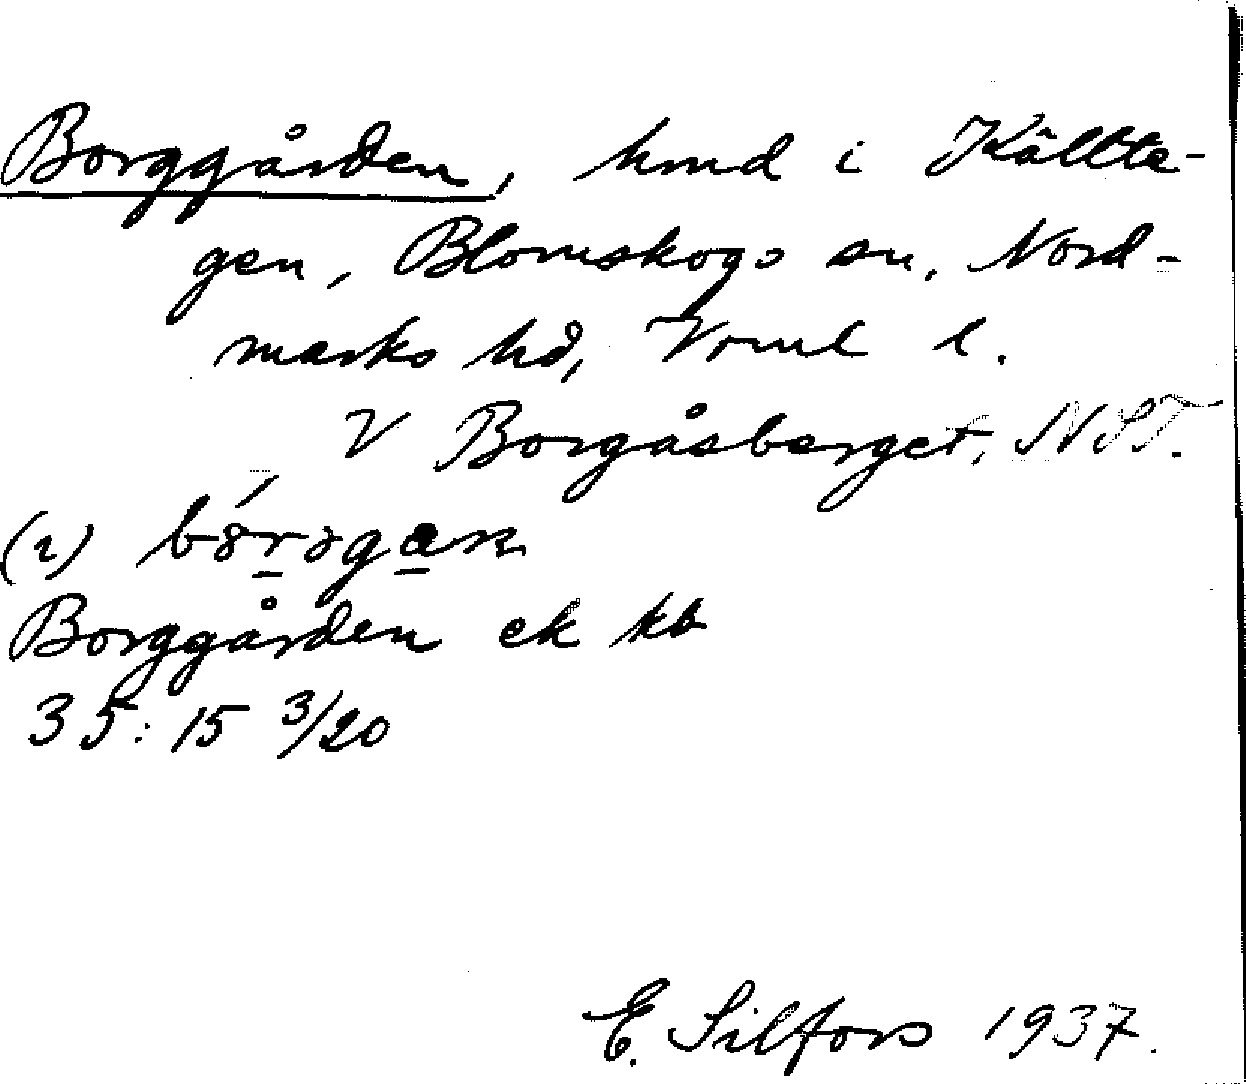 Borggården, hmd i Källte-
gen, Blomskogs sn, Nord-
marks hd, Vrml l.
V Borgåsberget, NST.
(1)
Borggården ek kb
35:15 3/20
E. Silfors 1937.